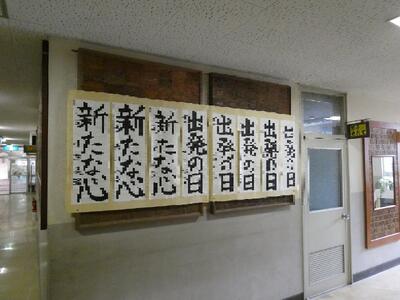 出発の日
出発の日
出発の日
出発の日
出発の日
新たな心
新たな心
新たな心